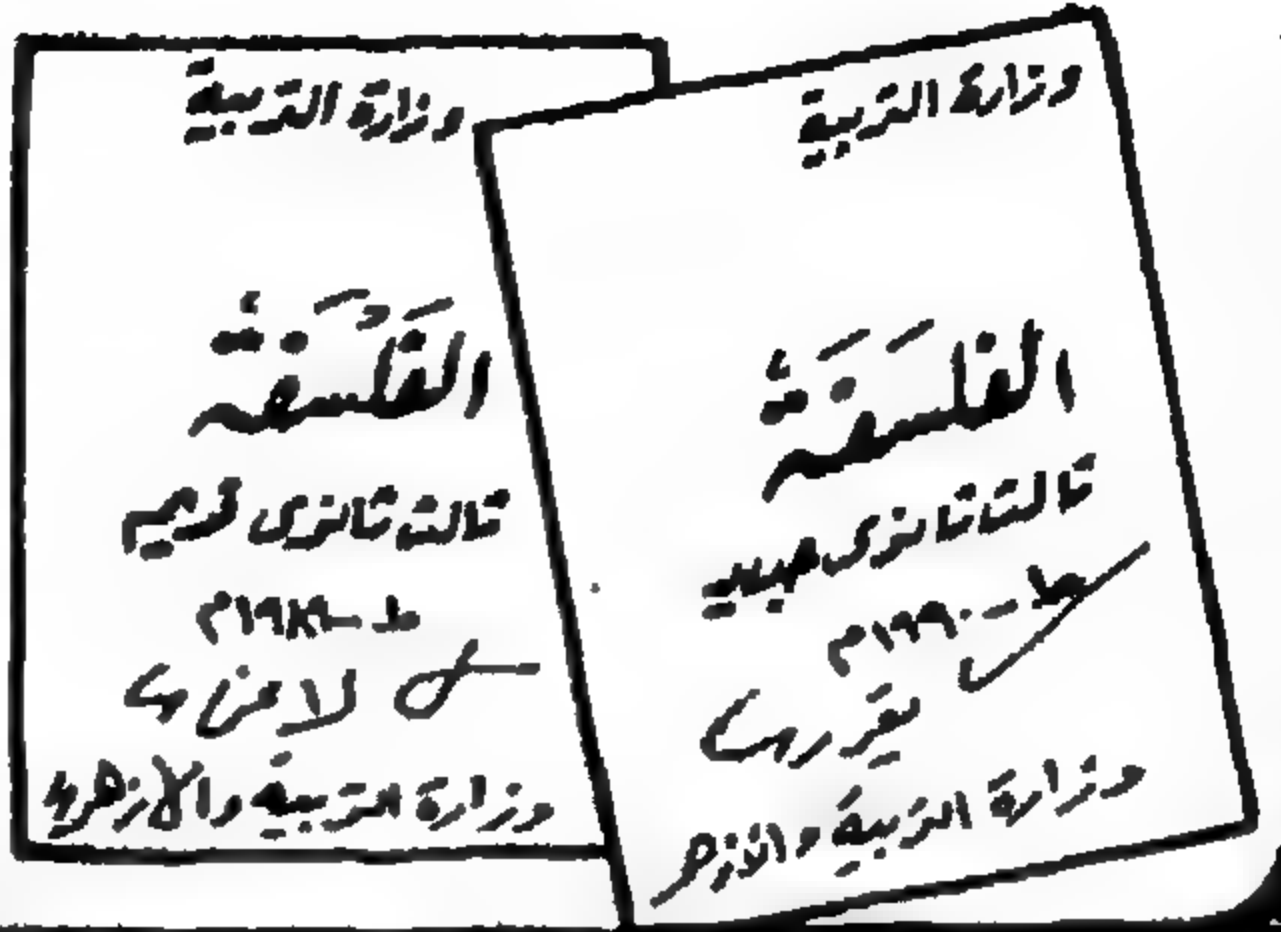 وزارة التربية
الفلسفة
ثالث ثانوى جديد
ط - ١٩٩٠م
يقررها
وزارة التربية والأزهر
وزارة التربية
الفلسفة
ثالث ثانوى قديم
ط - ١٩٨٩م
لا
وزارة التربية والازهر